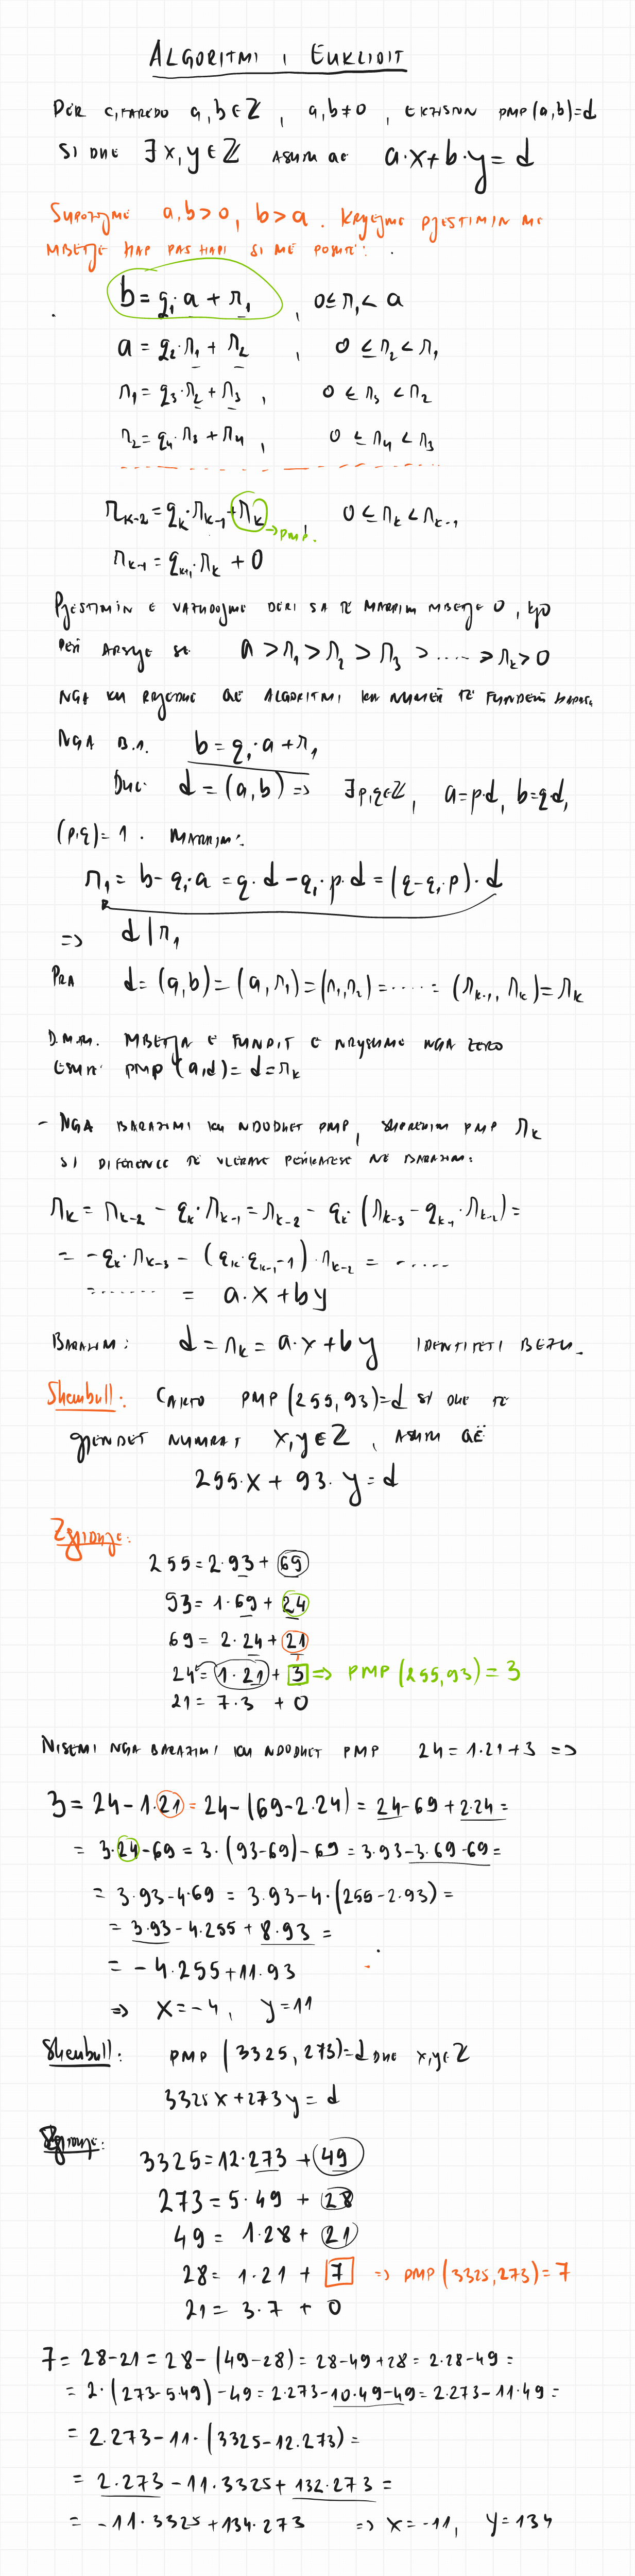 ALGORITMI I EUKLIDIT
PËR ÇFAREDO a, b ∈ ℤ , a, b ≠ 0 , EKZISTON PMP(a,b)=d
SI DHE ∃ x, y ∈ ℤ ASHTU QË a·x+b·y=d
SUPOZOJMË a, b > 0, b > a. KRYEJMË PJESTIMIN ME
MBETJE HAP PAS HAPI SI MË POSHTË:
b = q₁·a + r₁ , 0 ≤ r₁ < a
a = q₂·r₁ + r₂ , 0 ≤ r₂ < r₁
r₁ = q₃·r₂ + r₃ , 0 ≤ r₃ < r₂
r₂ = q₄·r₃ + r₄ , 0 ≤ r₄ < r₃
rₖ₋₂ = qₖ·rₖ₋₁ + rₖ → PMP. 0 ≤ rₖ < rₖ₋₁
rₖ₋₁ = qₖ₊₁·rₖ + 0
PJESTIMIN E VAZHDOJMË DERI SA TË MARRIM MBETJE 0, KJO
PËR ARSYE SE a > r₁ > r₂ > r₃ > ..... > rₖ > 0
NGA KU RRJEDHË QË ALGORITMI KA NUMËR TË FUNDËM HAPASH.
NGA B.1. b = q₁·a + r₁
DHE d = (a,b) => ∃ p,q∈ℤ, a=p·d, b=q·d,
(p,q)=1. MARRIM:
r₁ = b - q₁·a = q·d - q₁·p·d = (q-q₁·p)·d
=> d | r₁
PRA d=(a,b)=(a,r₁)=(r₁,r₂)=·····=(rₖ₋₁, rₖ)=rₖ
D.M.TH. MBETJA E FUNDIT E NDRYSHME NGA ZERO
ËSHTË PMP(a,d)=d=rₖ
- NGA BARAZIMI KU NDODHET PMP, SHPREHIM PMP rₖ
SI DIFERENCË TË VLERAVE PËRKATËSE NË BARAZIM:
rₖ = rₖ₋₂ - qₖ·rₖ₋₁ = rₖ₋₂ - qₖ·(rₖ₋₃ - qₖ₋₁·rₖ₋₂) =
= -qₖ·rₖ₋₃ - (qₖ·qₖ₋₁-1)·rₖ₋₂ = ·····
······· = a·x + by
BARAZIM: d = rₖ = a·x + by IDENTITETI BEZU.
Shembull: CAKTO PMP(255,93)=d SI DHE TË
GJENDET NUMRAT x,y∈ℤ, ASHTU QË
255·x + 93·y = d
Zgjidhje:
255 = 2·93 + 69
93 = 1·69 + 24
69 = 2·24 + 21
24 = 1·21 + 3 => PMP(255,93) = 3
21 = 7·3 + 0
NISEMI NGA BARAZIMI KU NDODHET PMP 24 = 1·21+3 =>
3 = 24-1·21 = 24-(69-2·24) = 24-69+2·24 =
= 3·24-69 = 3·(93-69)-69 = 3·93-3·69-69=
= 3·93-4·69 = 3·93-4·(255-2·93) =
= 3·93-4·255+8·93 =
= -4·255+11·93
=> x=-4, y=11
Shembull: PMP(3325,273)=d DHE x,y∈ℤ
3325x+273y=d
Zgjidhje:
3325=12·273+49
273=5·49+28
49 = 1·28+21
28 = 1·21 + 7 => PMP(3325,273)=7
21 = 3·7 + 0
7 = 28-21 = 28-(49-28) = 28-49+28 = 2·28-49 =
= 2·(273-5·49)-49=2·273-10·49-49=2·273-11·49=
= 2·273-11·(3325-12·273)=
= 2·273-11·3325+132·273 =
= -11·3325+134·273 => x=-11, y=134